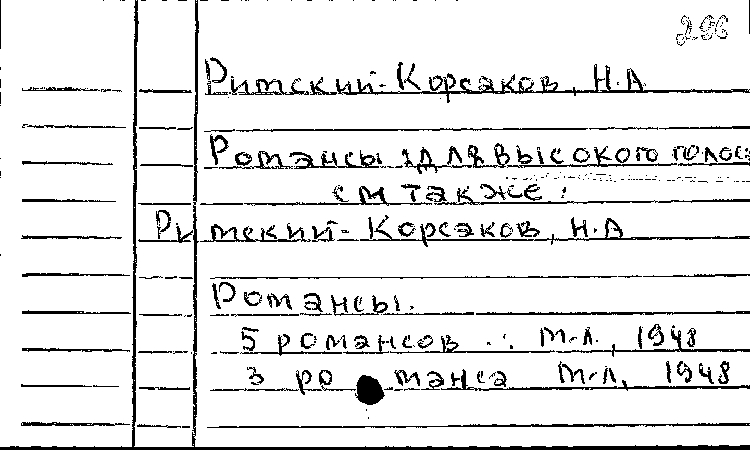 296
Римский-Корсаков, Н.А
Романсы для высокого голоса
см также:
Римский-Корсаков, Н.А
Романсы.
5 романсов .: М-Л., 1948
3 романса М-Л, 1948